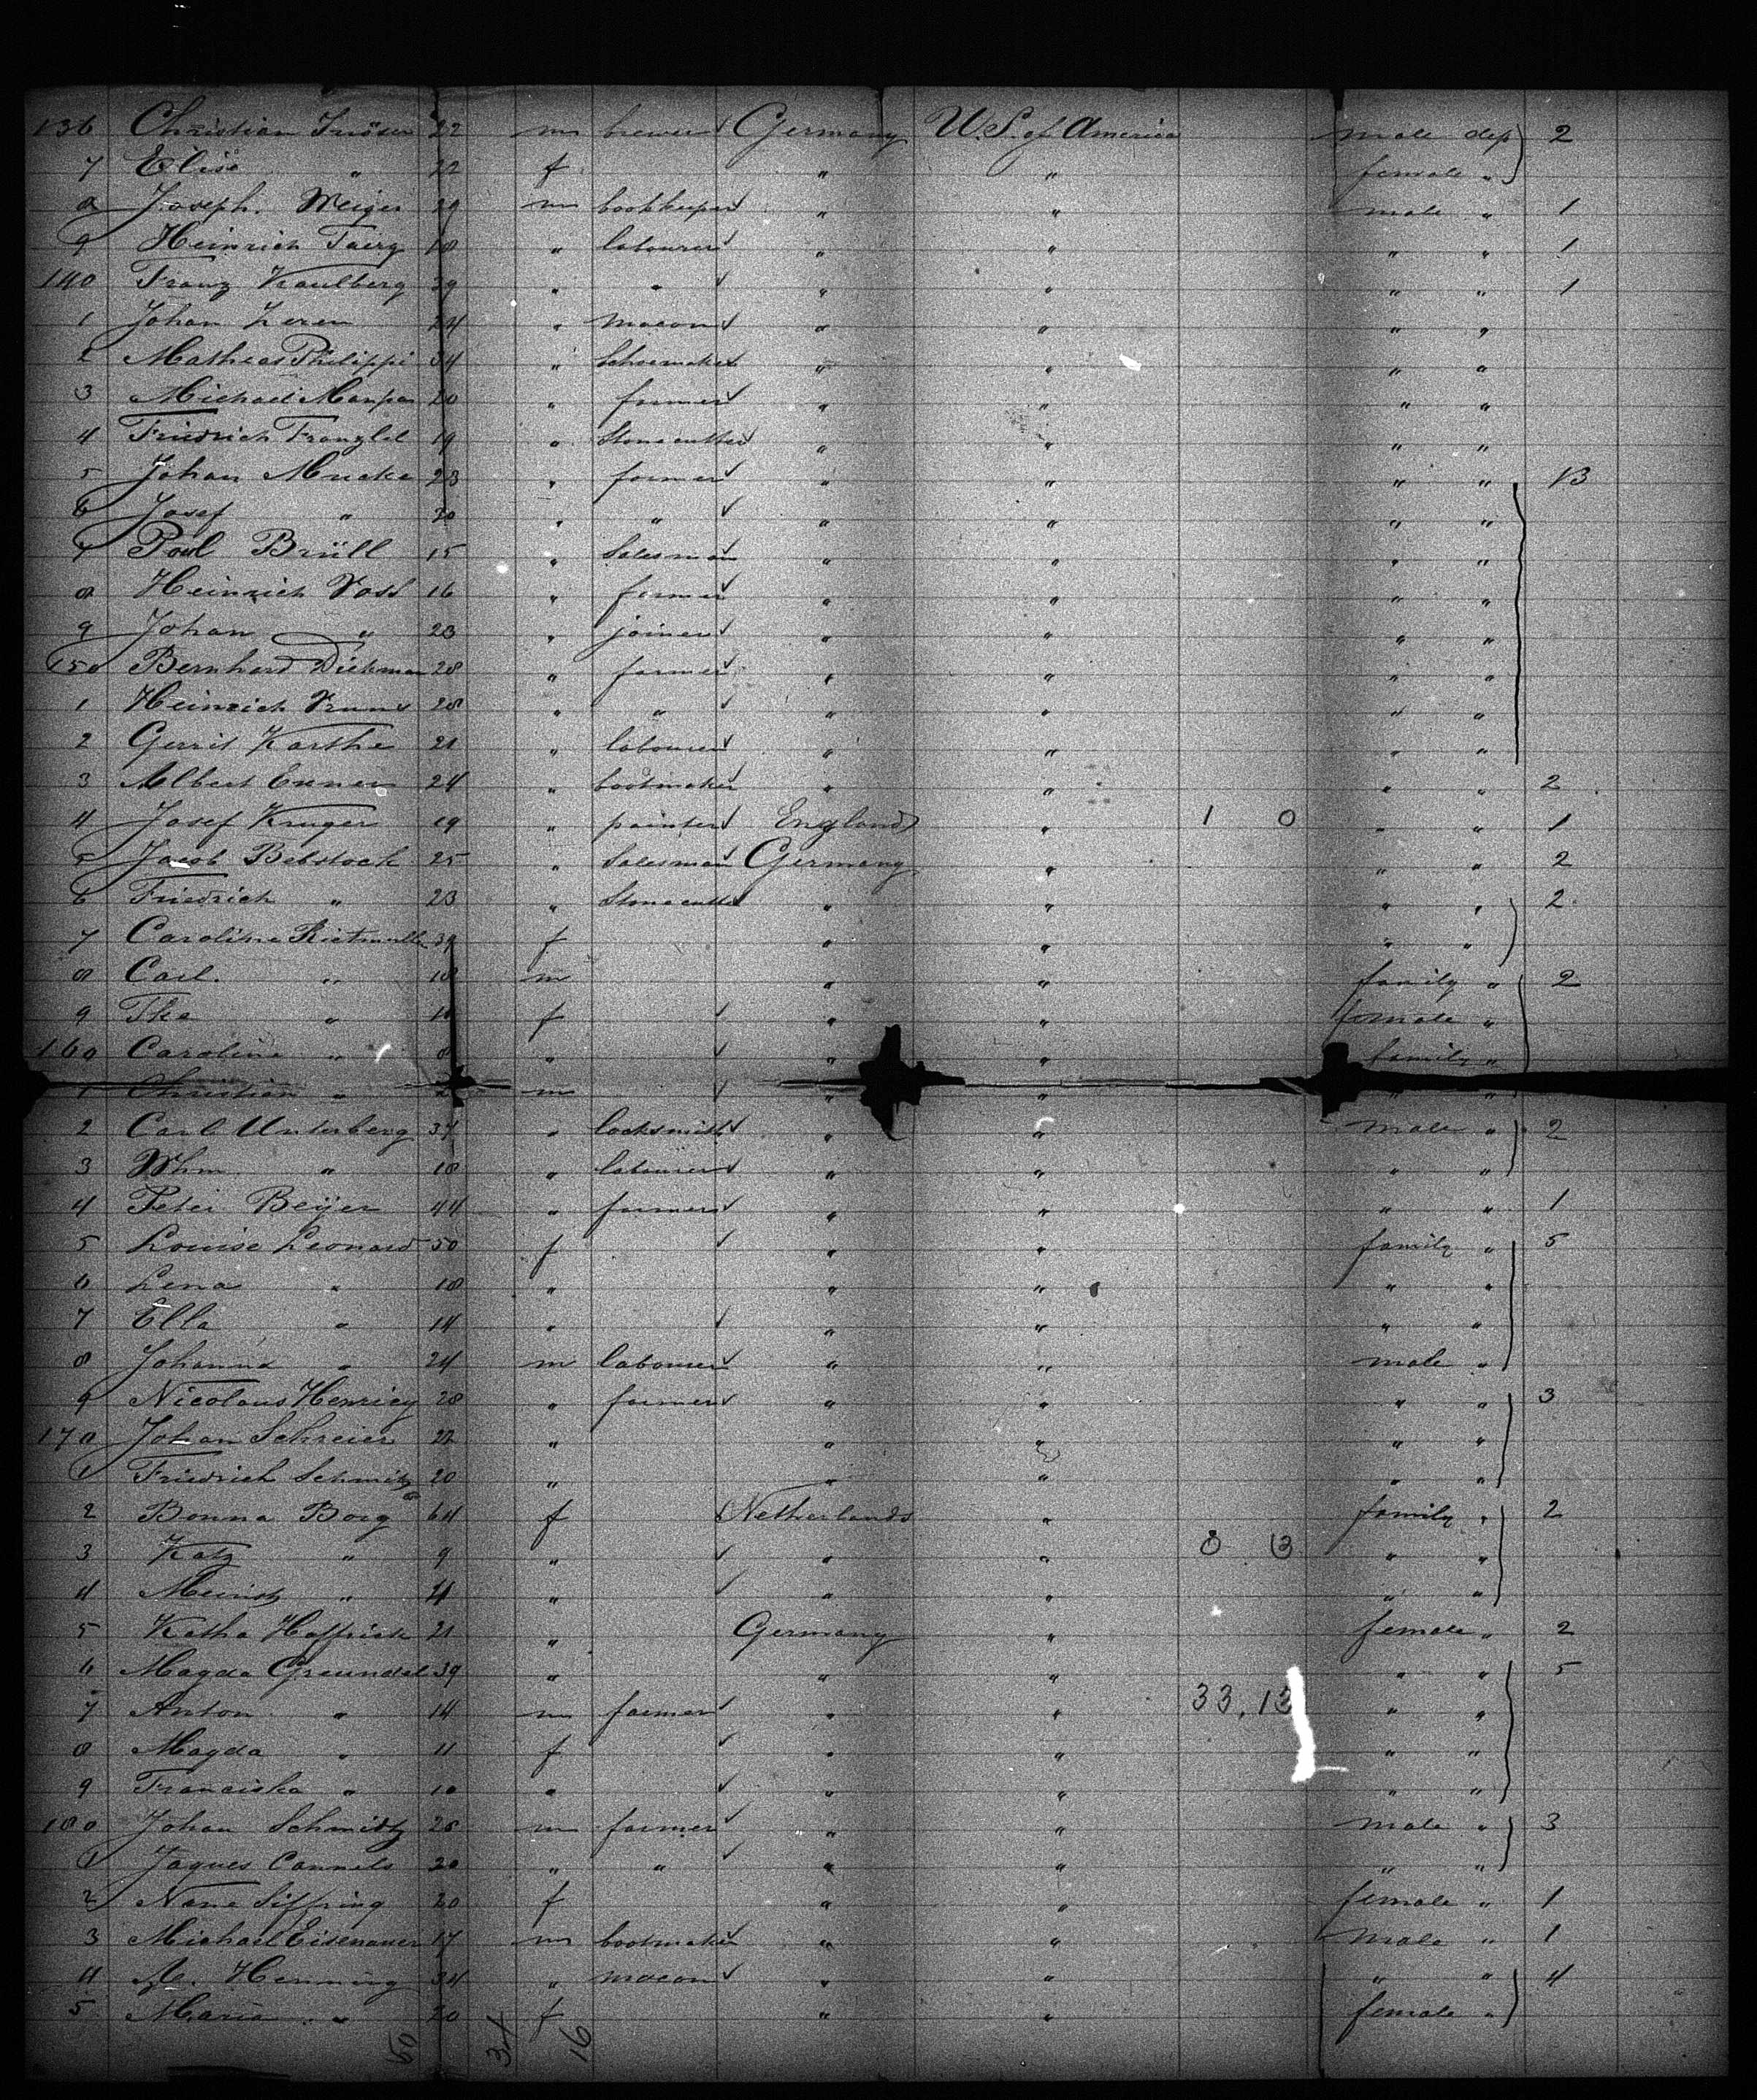 136 Christian 22 m brewer Germany U.S. of America male dep 2
7 Elise " 22 f " " female "
8 Joseph. Meiger 29 m bookkeeper " " male " 1
9 Heinrich 18 " labourer " " " " 1
140 Franz Kaulberg 39 " " " " " " 1
1 Johan Zeren 24 " macon " " " "
2 Mathias Philippi 34 " Schoemaker " " " "
3 Michael 20 " farmer " " " "
4 Friedrich 19 " Stonecutter " " " "
5 Johan Mucke 23 " farmer " " " " 13
6 Josef " 20 " " " " " "
7 Paul Brüll 15 " Salesman " " " "
8 Heinrich Voss 16 " farmer " " " "
9 Johan " 23 " joiner " " " "
150 Bernhard Diekman 28 " farmer " " " "
1 Heinrich 28 " " " " " "
2 Gerrit Karthe 21 " labourer " " " "
3 Albert Exner 24 " bootmaker " " " " 2
4 Josef Kruger 19 " painter England " 1 0 " " 1
5 Jacob Bebstock 25 " Salesman Germany " " " 2
6 Friedrich " 23 " Stonecutter " " " " 2
7 Caroline 39 f " " " "
8 Carl. " 10 m " " family " 2
9 " 11 f " " female "
160 Caroline " 8 " " " family "
1 Christian " 2 m " " " "
2 Carl Unterberg 37 " locksmith " " male " 2
3 Whm " 18 " labourer " " " "
4 Peter Beijer 44 " farmer " " " " 1
5 Louise Leonard 50 f " " family " 5
6 Lena " 18 " " " " "
7 Ella " 14 " " " " "
8 Johanna " 24 m labourer " " male "
9 Nicolaus Henricy 28 " farmer " " " " 3
170 Johan Schreier 22 " " " " "
1 Friedrich Schmitz 20 " " " " "
2 Bonna Borg 64 f Netherlands " family " 2
3 Katz " 9 " " " 8 13 " "
4 " " " " " "
5 Katha 21 " Germany " female " 2
6 Magda Greundel 39 " " " " " 5
7 Anton " 14 m farmer " " 33, 13 " "
8 Magda " 11 f " " " "
9 Franciska " 10 " " " " "
180 Johan Schmitz 25 m farmer " " male " 3
1 Jaques Cannels 20 " " " " " "
2 Nane Siffring 20 f " " female " 1
3 Michael Eisenauer 17 m bootmaker " " male " 1
4 M. Henning 34 " macon " " " " 4
5 Maria " 20 f " " female "
50 34 16